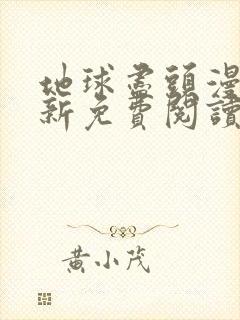 地球盡頭漫
新免費閱讀
黃小茂